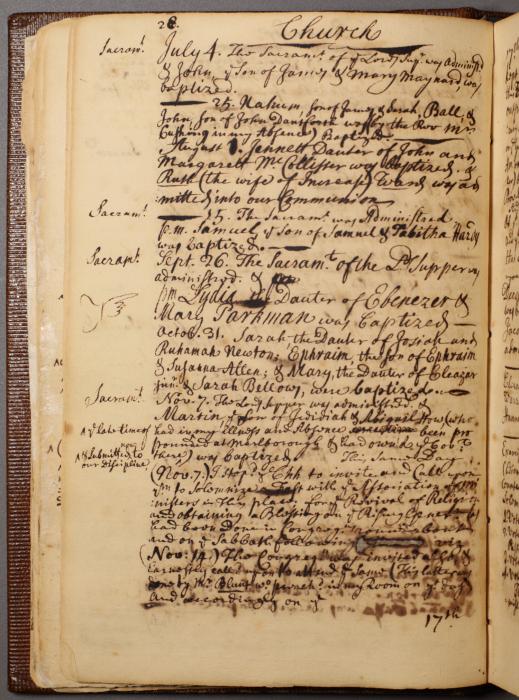 28. Church
Sacramt. July 4. The Sacramt. of ye Lords Supr. was Administd.
& John, ye Son of James & Mary Maynard, was
baptized.
25. Nahum son of James & Sarah Ball, &
John, son of John Danforth were (by the Revd. Mr.
in my Absence) Baptized
August 1. Jennett Dauter of John and
Margarett McCollister was baptized. &
Ruth (the wife of Increase) Ward was ad-
mitted into our Communion
Sacramt. 15. The Sacramt. was Administered
p.m. Samuel, ye Son of Samuel & Tabitha Hardy
was baptized.
Sacramt. Sept. 26. The Sacramt. of the Lds Supper was
administred. &
pm Lydia the Dauter of Ebenezer &
Mary Parkman was baptized
Octob. 31. Sarah the Dauter of Josiah and
Ruhamah Newton; Ephraim, the son of Ephraim
& Susanna Allen; & Mary, the Dauter of Eleazer
junr. & Sarah Bellows, were baptized.
Sacramt. Nov. 7. The Lds Supper was administred. &
Martin ye son of Jedidiah & Abigail How (who
^ ye late time of had in my illness and Absence been pro
pounded at Marlborough & had ownd ye Cov.t
^ & Submitted to now
our discipline there) was baptized. This Same Day
(Nov. 7.) I Stop'd ye Chh to invite and Call upon
ym to Solemnize a Fast with ye Association of Mi-
nisters in this place for ye Revival of Religion
and obtaining a Blessing on ye Rising Generation as
had been done in
and on ye Sabbath following viz
(Nov. 14.) The Congregation was invited also &
Earnestly called upon to attend ye Same (This latter was
done by Mr. Blunt who preach'd in my Room on ys day)
And accordingly on ye
17th